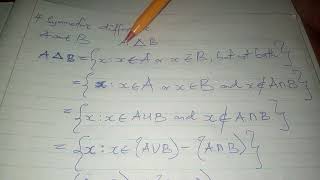 4 Symmetric difference
A and B A Δ B
A Δ B = {x: x ∈ A or x ∈ B, but not both}
= {x: x ∈ A or x ∈ B and x ∉ A∩B}
= {x: x ∈ A∪B and x ∉ A∩B}
= {x: x ∈ (A∪B) - (A∩B)}